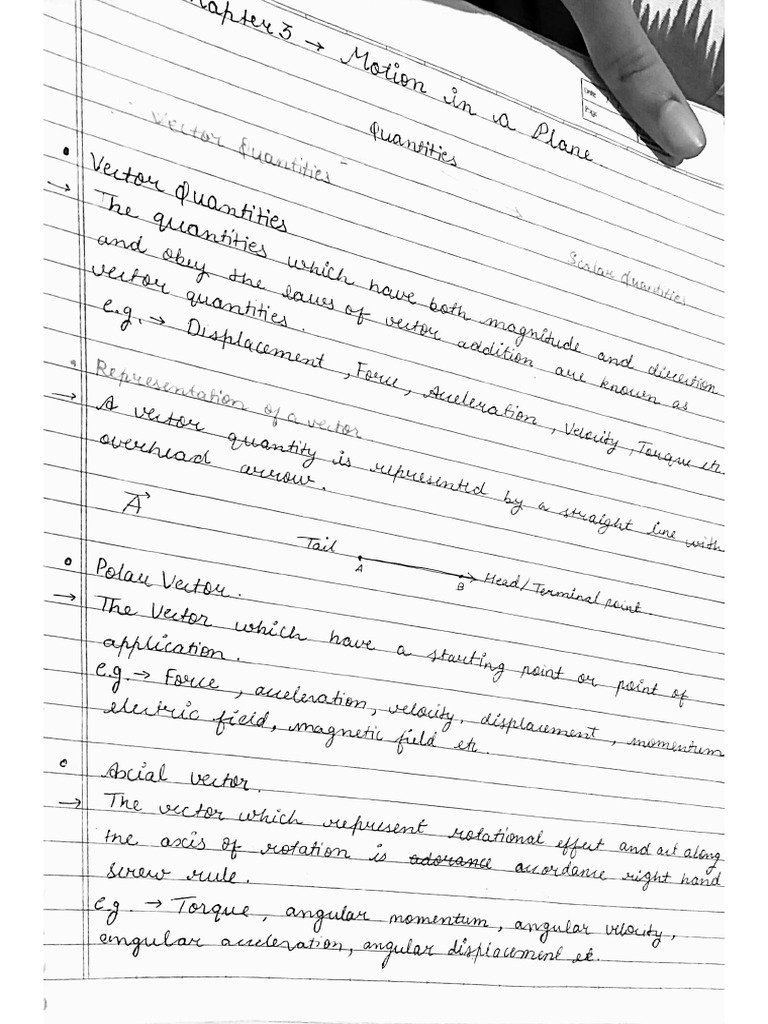 Chapter 3 → Motion in a Plane
Date
Page
Quantities
Vector Quantities
Scalar Quantities
• Vector Quantities
→ The quantities which have both magnitude and direction
and obey the laws of vector addition are known as
vector quantities.
e.g. → Displacement, Force, Acceleration, Velocity, Torque etc.
• Representation of a vector.
→ A vector quantity is represented by a straight line with
overhead arrow.
A→
Tail
A
B
Head/Terminal point.
• Polar Vector.
→ The Vector which have a starting point or point of
application.
e.g. → Force, acceleration, velocity, displacement, momentum
electric field, magnetic field etc.
• Axial vector.
→ The vector which represent rotational effect and act along
the axis of rotation is accordance right hand
screw rule.
e.g → Torque, angular momentum, angular velocity,
angular acceleration, angular displacement etc.